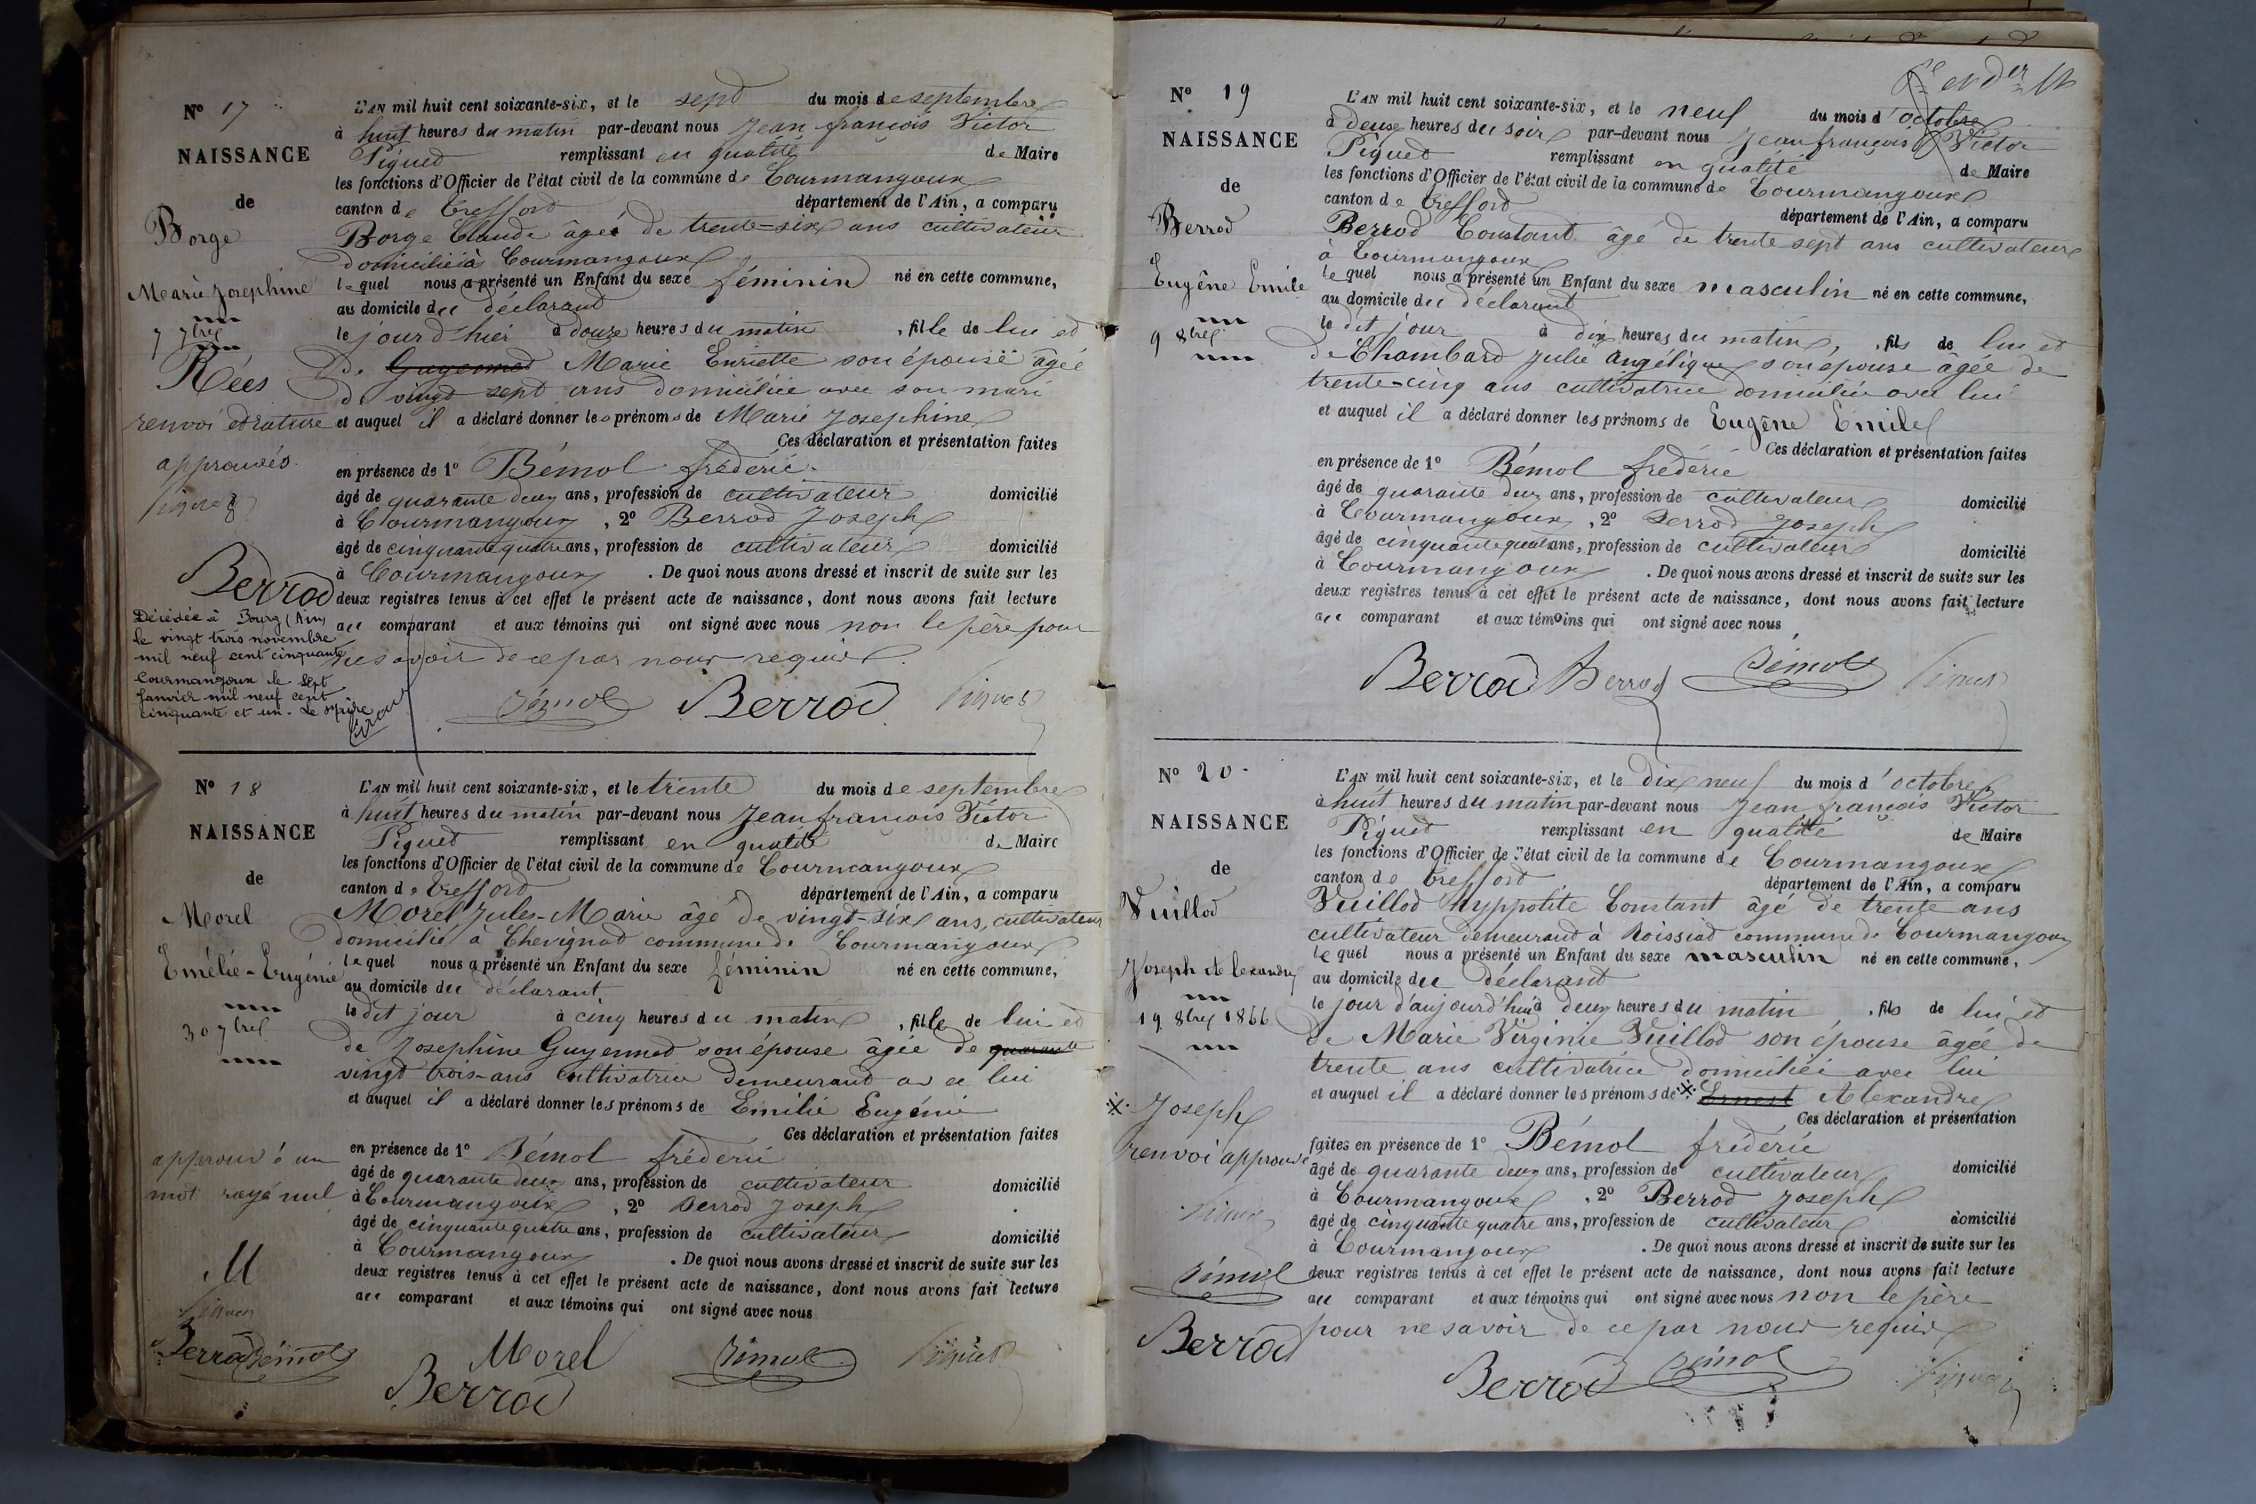 N° 17
NAISSANCE
de
Borge
Marie Josephine
7 7bre
Rées
renvoi et rature
approuvés.
Berrod
Décédée à Bourg (Ain)
le vingt trois novembre
mil neuf cent cinquante
Courmangoux le sept
Janvier mil neuf cent
cinquante et un. Le
L'AN mil huit cent soixante-six, et le sept du mois de septembre
à huit heures du matin par-devant nous Jean françois Victor
Piquet remplissant en qualité de Maire
les fonctions d'Officier de l'état civil de la commune de Courmangoux
canton de Treffort département de l'Ain, a comparu
Borge Claude âgé de trente-six ans cultivateur
domicilié à Courmangoux
lequel nous a présenté un Enfant du sexe féminin né en cette commune,
au domicile du déclarant
le jour d'hier à douze heures du matin, fille de lui et
de Guyennet Marie Enriette son épouse âgée
de vingt sept ans domiciliée avec son mari
et auquel il a déclaré donner les prénoms de Marie Josephine
Ces déclaration et présentation faites
en présence de 1° Bémol frédéric
âgé de quarante deux ans, profession de cultivateur domicilié
à Courmangoux, 2° Berrod Joseph
âgé de cinquante quatre ans, profession de cultivateur domicilié
à Courmangoux. De quoi nous avons dressé et inscrit de suite sur les
deux registres tenus à cet effet le présent acte de naissance, dont nous avons fait lecture
au comparant et aux témoins qui ont signé avec nous non le père pour
ne savoir de ce par nous requis
Bémol Berrod Piquet
N° 18
NAISSANCE
de
Morel
Emélie-Eugénie
30 7bre
approuvé un
mot rayé nul
M
Piquet
Berrod Bémol
L'AN mil huit cent soixante-six, et le trente du mois de septembre
à huit heures du matin par-devant nous Jean francois Victor
Piquet remplissant en qualité de Maire
les fonctions d'Officier de l'état civil de la commune de Courmangoux
canton de Treffort département de l'Ain, a comparu
Morel Jules-Marie âgé de vingt-six ans, cultivateur
domicilié à Chevignat commune de Courmangoux
lequel nous a présenté un Enfant du sexe féminin né en cette commune,
au domicile du déclarant
le dit jour à cinq heures du matin, fille de lui et
de Josephine Guyennet son épouse âgée de quarante
vingt trois-ans cultivatrice demeurant avec lui
et auquel il a déclaré donner les prénoms de Emilie Eugénie
Ces déclaration et présentation faites
en présence de 1° Bémol frédéric
âgé de quarante deux ans, profession de cultivateur domicilié
à Courmangoux, 2° Berrod Joseph
âgé de cinquante quatre ans, profession de cultivateur domicilié
à Courmangoux. De quoi nous avons dressé et inscrit de suite sur les
deux registres tenus à cet effet le présent acte de naissance, dont nous avons fait lecture
au comparant et aux témoins qui ont signé avec nous
Morel Bémol Piquet
Berrod
N° 19
NAISSANCE
de
Berrod
Eugêne Emile
9 8bre
L'AN mil huit cent soixante-six, et le neuf du mois d'octobre
à deux heures du soir par-devant nous Jean françois Victor
Piquet remplissant en qualité de Maire
les fonctions d'Officier de l'état civil de la commune de Courmangoux
canton de Treffort département de l'Ain, a comparu
Berrod Constant âgé de trente sept ans cultivateur
à Courmangoux
lequel nous a présenté un Enfant du sexe masculin né en cette commune,
au domicile du déclarant
le dit jour à dix heures du matin, fils de lui et
de Chambard Julie Angélique son épouse âgée de
trente-cinq ans cultivatrice domiciliée avec lui
et auquel il a déclaré donner les prénoms de Eugêne Emile
Ces déclaration et présentation faites
en présence de 1° Bémol frédéric
âgé de quarante deux ans, profession de cultivateur domicilié
à Courmangoux, 2° Berrod Joseph
âgé de cinquante quatre ans, profession de cultivateur domicilié
à Courmangoux. De quoi nous avons dressé et inscrit de suite sur les
deux registres tenus à cet effet le présent acte de naissance, dont nous avons fait lecture
au comparant et aux témoins qui ont signé avec nous
Berrod Berrod Bémol Piquet
N° 20
NAISSANCE
de
Vuillod
Joseph Alexandre
19 8bre 1866
Joseph
renvoi approuvé
Piquet
Bémol
Berrod
L'AN mil huit cent soixante-six, et le dix neuf du mois d'octobre
à huit heures du matin par-devant nous Jean françois Victor
Piquet remplissant en qualité de Maire
les fonctions d'Officier de l'état civil de la commune de Courmangoux
canton de Treffort département de l'Ain, a comparu
Vuillod Hyppolite Constant âgé de trente ans
cultivateur demeurant à Roissiat commune de Courmangoux
lequel nous a présenté un Enfant du sexe masculin né en cette commune,
au domicile du déclarant
le jour d'aujourd'hui à deux heures du matin, fils de lui et
de Marie Virginie Vuillod son épouse âgée de
trente ans cultivatrice domiciliée avec lui
et auquel il a déclaré donner les prénoms de Ernest Alexandre
Ces déclaration et présentation
faites en présence de 1° Bémol frédéric
âgé de quarante deux ans, profession de cultivateur domicilié
à Courmangoux, 2° Berrod Joseph
âgé de cinquante quatre ans, profession de cultivateur domicilié
à Courmangoux. De quoi nous avons dressé et inscrit de suite sur les
deux registres tenus à cet effet le présent acte de naissance, dont nous avons fait lecture
au comparant et aux témoins qui ont signé avec nous non le père
pour ne savoir de ce par nous requis
Berrod Bémol Piquet